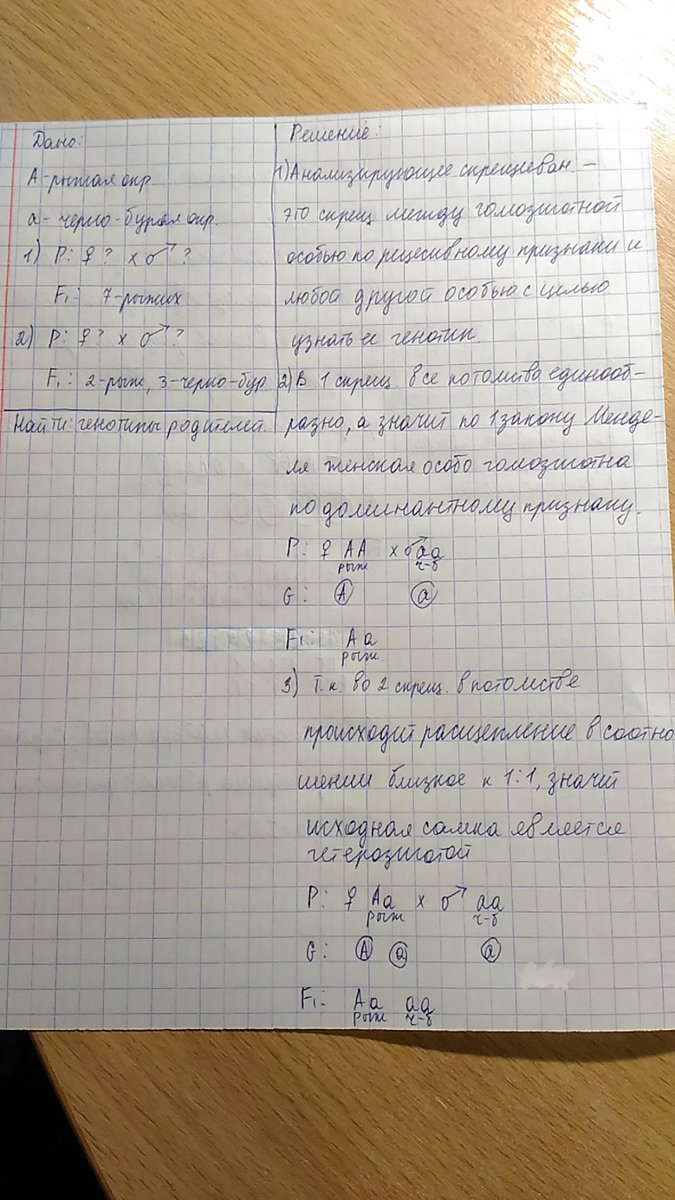 Дано:
А-рыжая окр.
а- черно-бурая окр.
1) Р: ♀ ? х ♂ ?
F₁: 7-рыжих
2) Р: ♀ ? х ♂ ?
F₁: 2-рыж, 3-черно-бур
Найти: генотипы родителей.
Решение:
1) Анализирующее скрещиван. –
это скрещ между гомозиготной
особью по рецесивному признаки и
любой другой особью с целью
узнать ее генотип.
2) В 1 скрещ. все потомство единооб-
разно, а значит по 1 закону Менде-
ля женская особо гомозиготна
по доминантному признаку.
Р: ♀ АА х ♂ аа
рыж ч-б
G: А а
F₁: Аа
рыж
3) Т.к. во 2 скрещ. в потомстве
происходит расщепление в соотно
шении близкое к 1:1, значит
исходная самка является
гетерозиготой
Р: ♀ Аа х ♂ аа
рыж ч-б
G: А а а
F₁: Аа аа
рыж ч-б